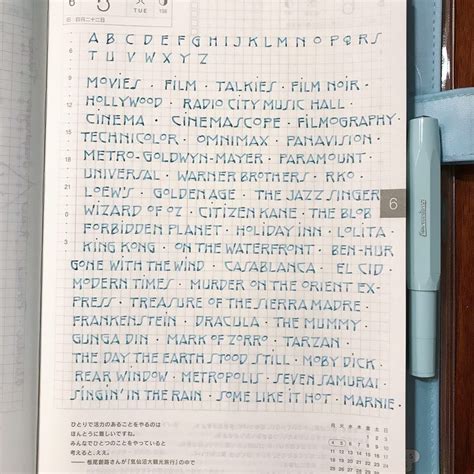 6
TUE
158
A B C D E F G H I J K L M N O P Q R S
T U V W X Y Z
MOVIES · FILM · TALKIES · FILM NOIR ·
HOLLYWOOD · RADIO CITY MUSIC HALL ·
CINEMA · CINEMASCOPE · FILMOGRAPHY ·
TECHNICOLOR · OMNIMAX · PANAVISION ·
METRO-GOLDWYN-MAYER · PARAMOUNT ·
UNIVERSAL · WARNER BROTHERS · RKO ·
LOEW'S · GOLDEN AGE · THE JAZZ SINGER
WIZARD OF OZ · CITIZEN KANE · THE BLOB
FORBIDDEN PLANET · HOLIDAY INN · LOLITA ·
KING KONG · ON THE WATERFRONT · BEN-HUR
GONE WITH THE WIND · CASABLANCA · EL CID ·
MODERN TIMES · MURDER ON THE ORIENT EX-
PRESS · TREASURE OF THE SIERRA MADRE ·
FRANKENSTEIN · DRACULA · THE MUMMY ·
GUNGA DIN · MARK OF ZORRO · TARZAN ·
THE DAY THE EARTH STOOD STILL · MOBY DICK ·
REAR WINDOW · METROPOLIS · SEVEN SAMURAI ·
SINGIN' IN THE RAIN · SOME LIKE IT HOT · MARNIE ·
6
ひとりで活力のあることをやるのは
ほんとうに難しいですね。
みんなでひとつのことをやっていると
考えると、ええ。